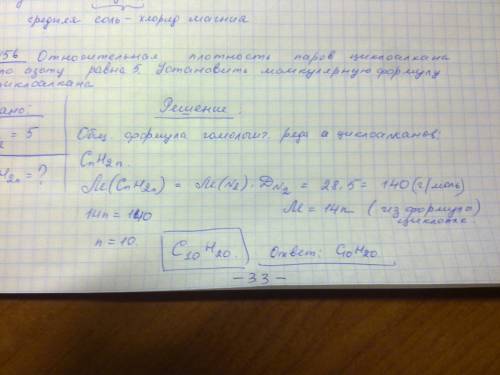 средняя соль - хлорид магния
15б Относительная плотность паров циклоалкана
по азоту равна 5. Установить молекулярную формулу
циклоалкана
ано:
Решение.
2 = 5
Общ. формула гомологич. ряда циклоалканов:
H2n = ?
CnH2n.
M(CnH2n) = M(N2) · DN2 = 28·5 = 140 (г/моль)
14n = 140
M = 14n (из формулы)
n = 10.
C10H20.
Ответ: C10H20
-33-